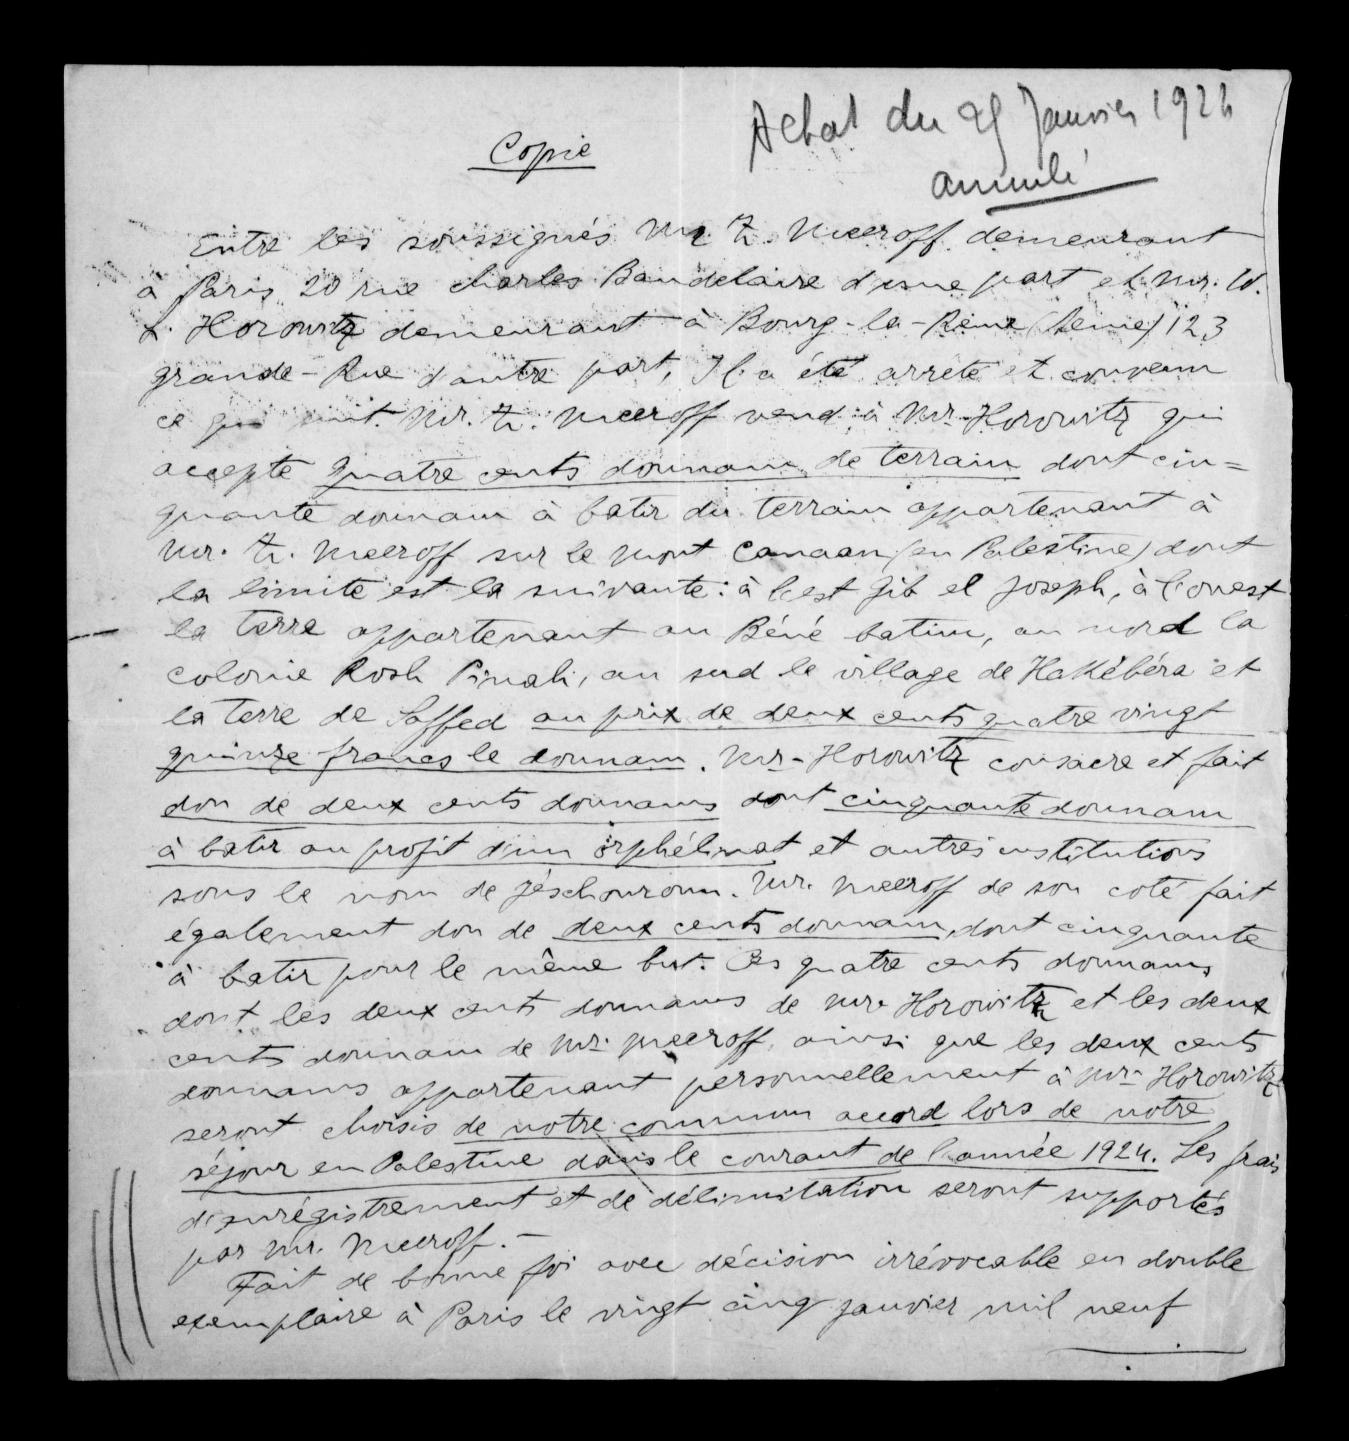 Achat du 25 Janvier 1924
annulé
Copie
Entre les soussignés Mr Z. Meeroff demeurant
à Paris 20 rue charles Baudelaire d'une part et Mr. W.
L. Horowitz demeurant à Bourg-la-Reine (Seine) 123
grande-Rue d'autre part, Il a été arrêté et convenu
ce qui suit. Mr. Z. Meeroff vend à Mr Horowitz qui
accepte quatre cents dounam de terrain dont cin=
quante dounam à batir du terrain appartenant à
Mr. Z. Meeroff sur le Mont Canaan (en Palestine) dont
la limite est la suivante: à l'est Jib el Joseph, à l'ouest
la terre appartenant au Béné batim, au nord la
colonie Rosh Pinah, au sud le village de HaKébéra et
la terre de Saffed au prix de deux cents quatre vingt
quinze francs le dounam. Mr- Horowitz consacre et fait
don de deux cents dounams dont cinquante dounam
à batir au profit d'un orphélinat et autres institutions
sous le nom de Jéschouroun. Mr. Meeroff de son coté fait
également don de deux cents dounam, dont cinquante
à batir pour le même but. Ces quatre cents dounams
dont les deux cents dounams de Mr. Horowitz et les deux
cents dounam de Mr. Meeroff, ainsi que les deux cents
dounams appartenant personnellement à Mr- Horowitz
seront choisis de notre commun accord lors de notre
séjour en Palestine dans le courant de l'année 1924. Les frais
d'enrégistrement et de délimitation seront supportés
par Mr. Meeroff.-
Fait de bonne foi avec décision irrévocable en double
exemplaire à Paris le vingt cinq janvier mil neuf